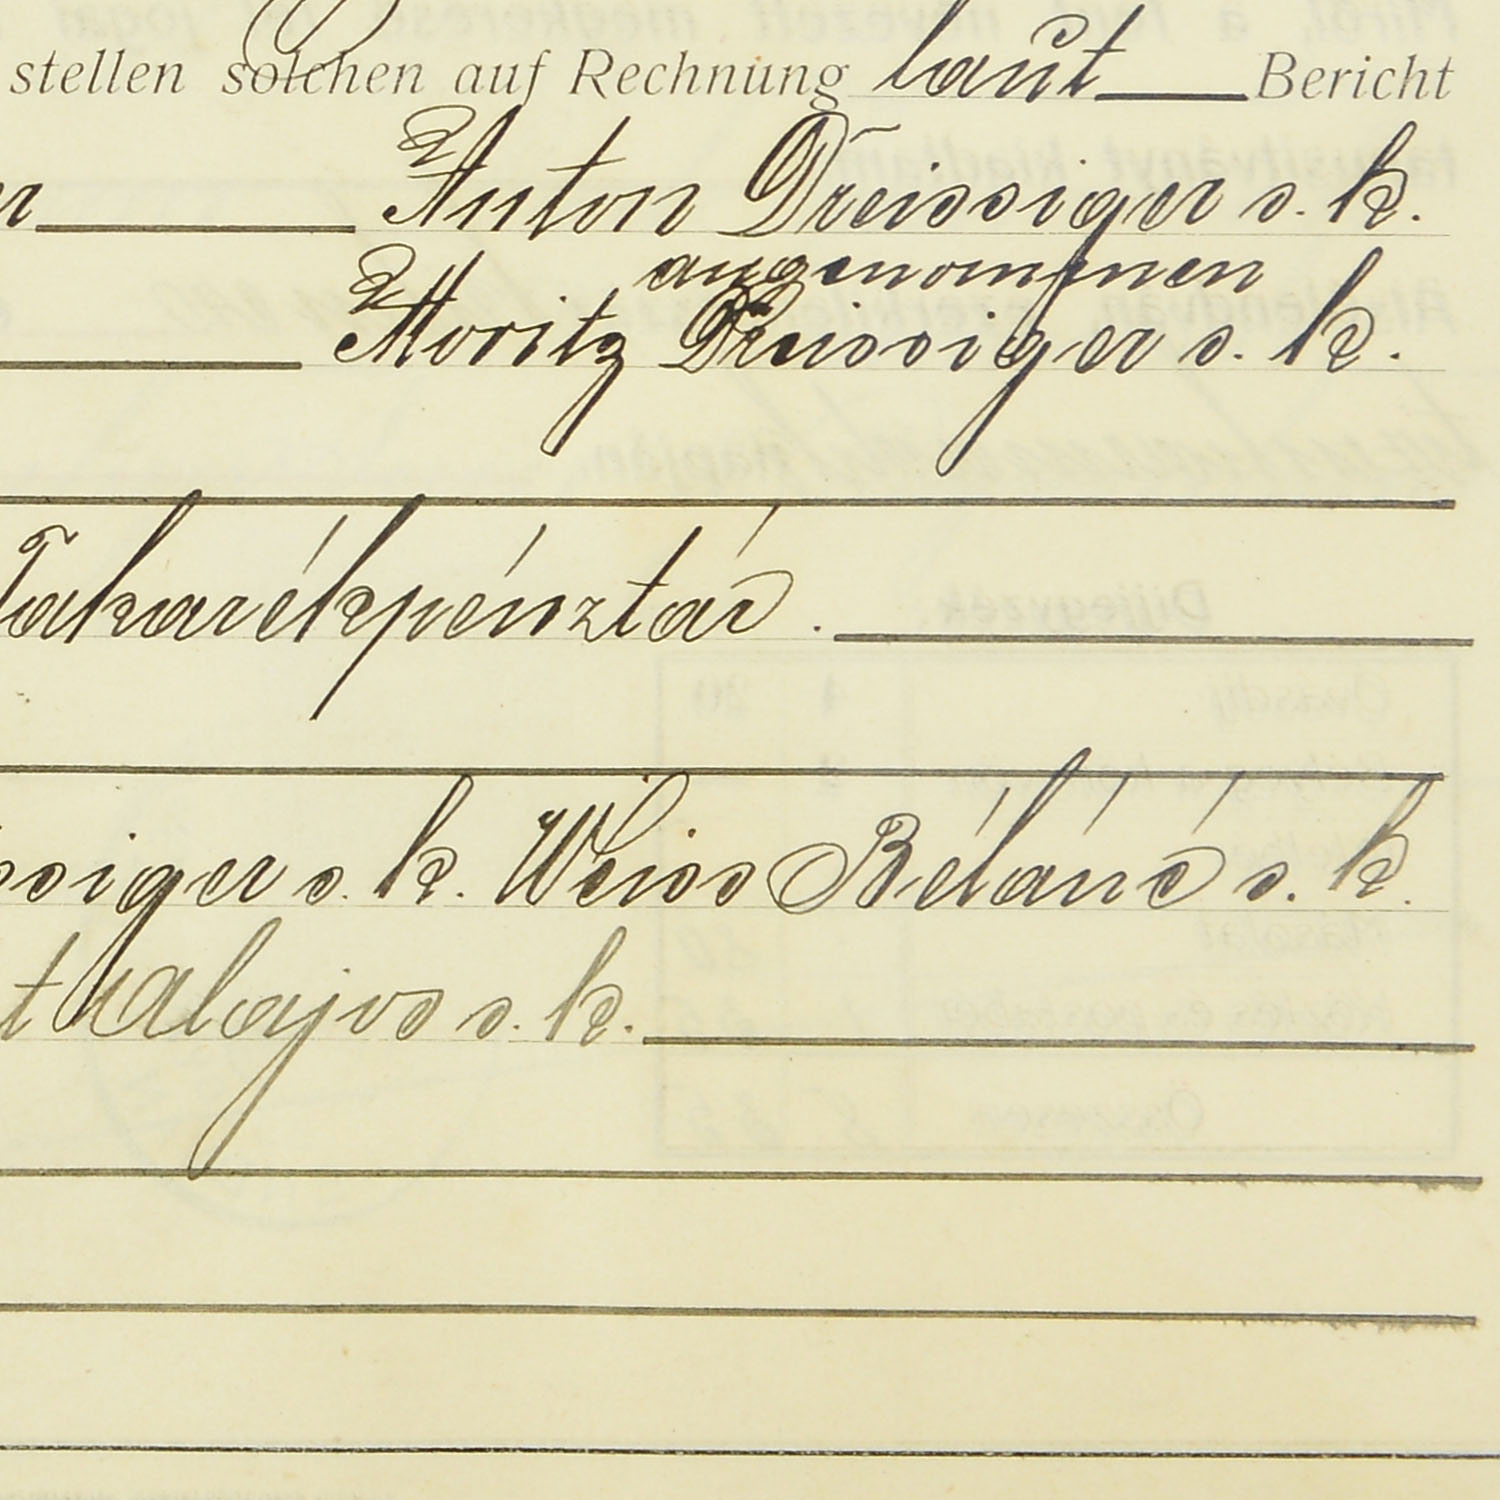 stellen solchen auf Rechnung laut Bericht
Anton Dreissiger s. k.
angenommen
Moritz Dreissiger s. k.
Takarékpénztár.
ssiger s. k. Weiss Béláné s. k.
t Alajos s. k.